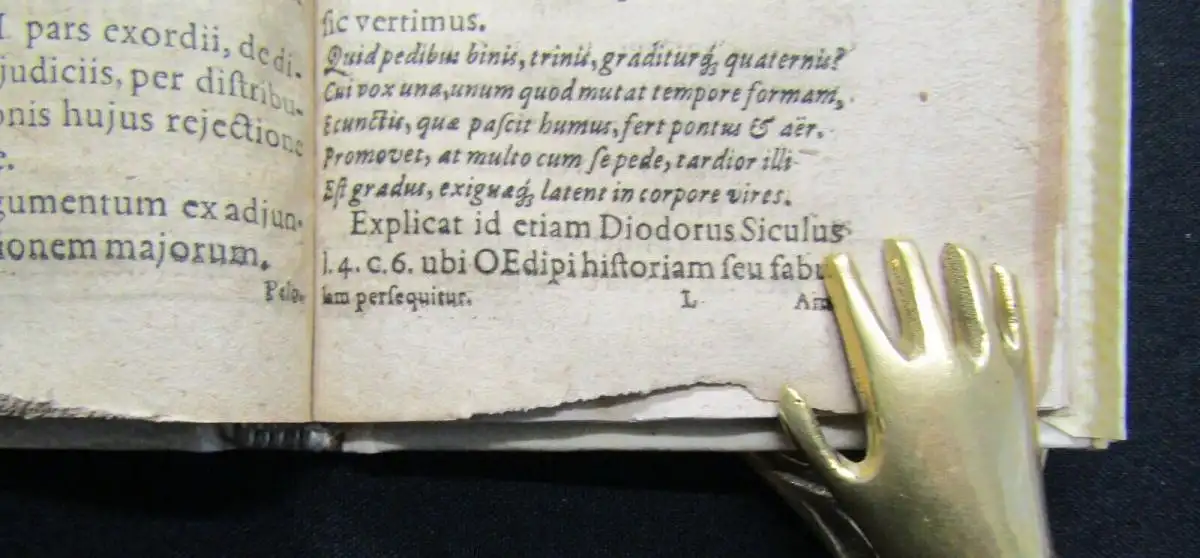 I pars exordii, de di-
judiciis, per distribu-
onis hujus rejectione
gumentum ex adjun-
ionem majorum.
Pelo-
sic vertimus.
Quid pedibus binis, trinis, graditurq́; quaternis?
Cui vox una, unum quod mutat tempore formam,
E cunctis, quæ pascit humus, fert pontus & aër.
Promovet, at multo cum se pede, tardior illi
Est gradus, exiguaq́; latent in corpore vires.
Explicat id etiam Diodorus Siculus
l. 4. c. 6. ubi OEdipi historiam seu fabu
lam persequitur.
L
Am